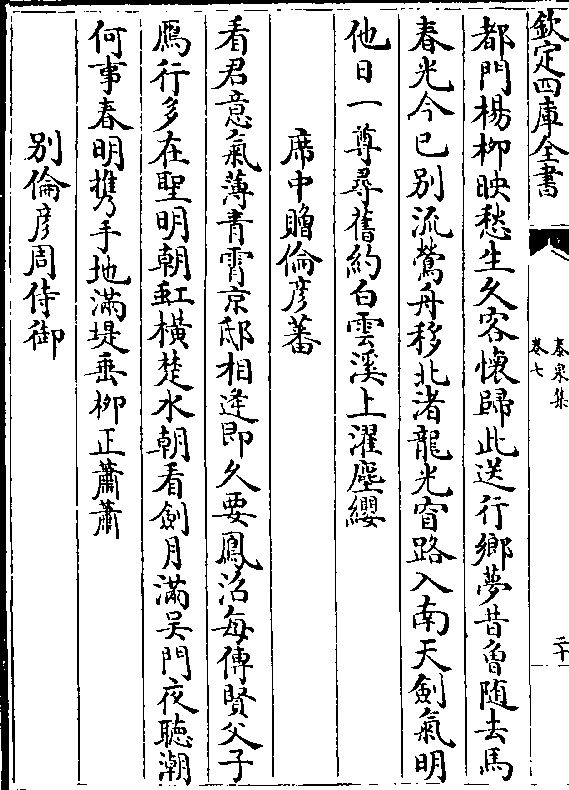 欽定四庫全書
泰泉集
卷七
二十
都門楊柳映愁生久客懷歸此送行鄉夢昔曾随去馬
春光今已别流鶯舟移北渚龍光窅路入南天劍氣明
他日一尊尋舊約白雲溪上濯塵纓
席中贈倫彦蕃
看君意氣薄青霄京邸相逢即久要鳳沼每傳賢父子
鴈行多在聖明朝虹横楚水朝看劍月滿吳門夜聽潮
何事春明携手地滿堤垂柳正蕭蕭
别倫彦周侍御